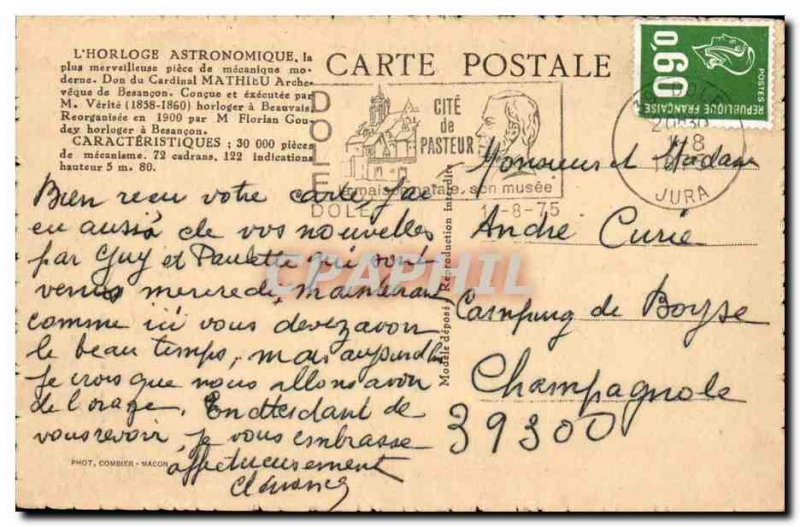 L'HORLOGE ASTRONOMIQUE, la
plus merveilleuse pièce de mécanique mo-
derne. Don du Cardinal MATHIEU Arche-
vêque de Besançon. Conçue et exécutée par
M. Vérité (1858-1860) horloger à Beauvais.
Reorganisée en 1900 par M Florian Gou-
dey horloger à Besançon.
CARACTÉRISTIQUES : 30 000 pièces
de mécanisme. 72 cadrans, 122 indications
hauteur 5 m. 80.
CARTE POSTALE
DOLE
CITÉ
de
PASTEUR
sa maison natale, son musée
DOLE
-8-75
0.60
POSTES
REPUBLIQUE FRANÇAISE
JURA
Bien reçu votre carte, j'ai
eu aussi de vos nouvelles
par Guy et Paulette qui sont
venus mercredi, maintenant
comme ici vous devez avoir
le beau temps, mais aujourd'hui
je crois que nous allons avoir
de l'orage. En attendant de
vous revoir, je vous embrasse
affectueusement
Modèle déposé, Reproduction interdite
Monsieur et Madame
André Curie
Camping de Boyse
Champagnole
39300
PHOT. COMBIER - MACON
CPAPHIL